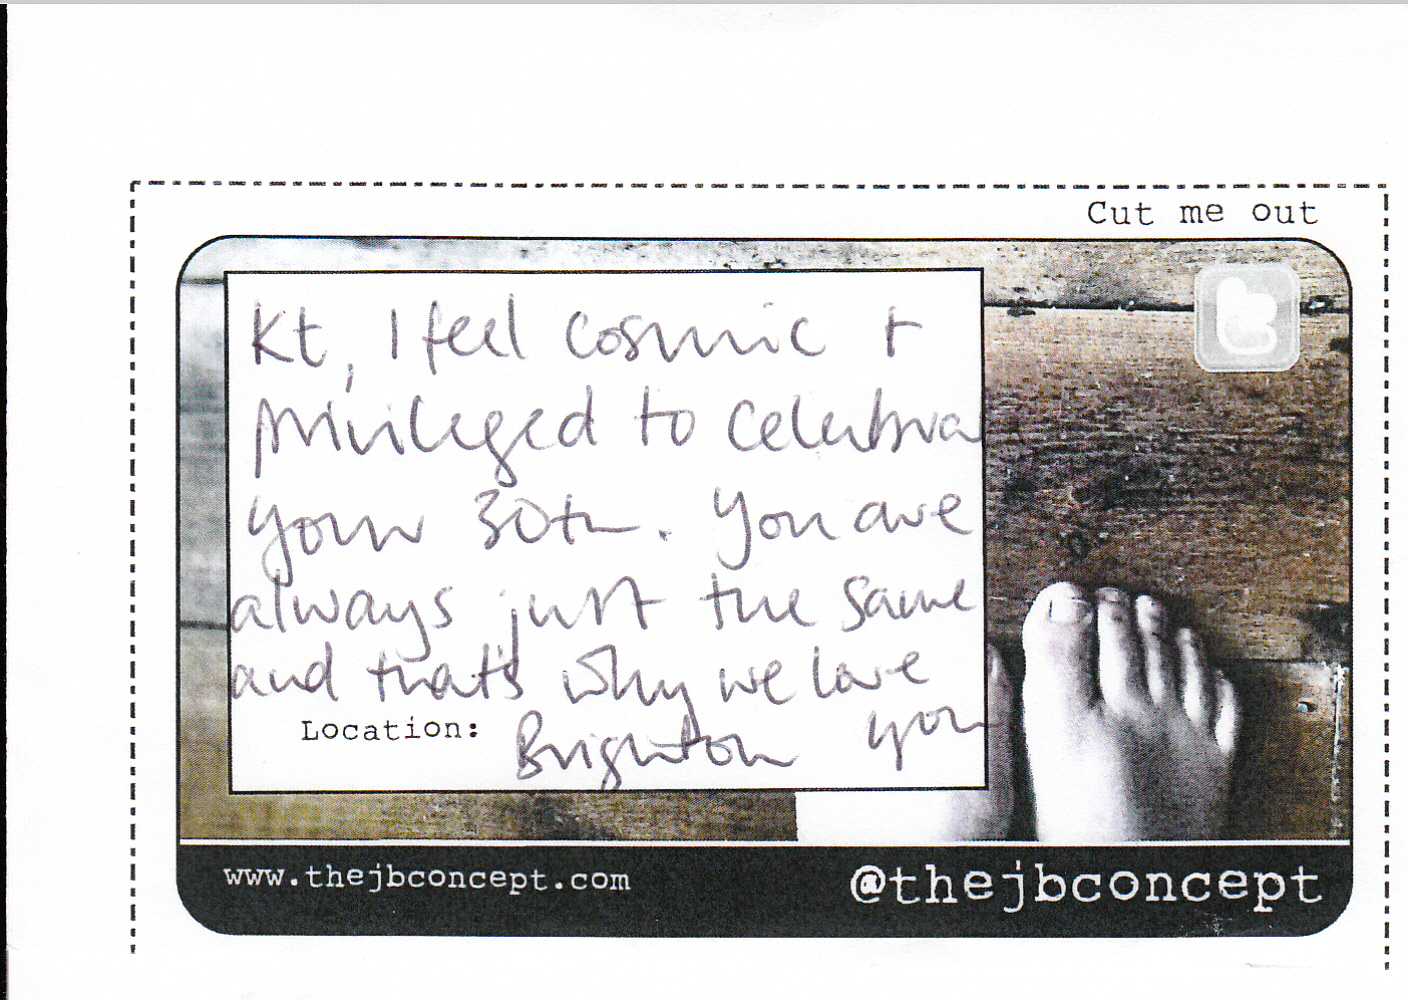 Cut me out
Kt, I feel cosmic +
privileged to celebra
your 30th. You are
always just the same
and that's why we love
you
Location: Brighton
www.thejbconcept.com
@thejbconcept